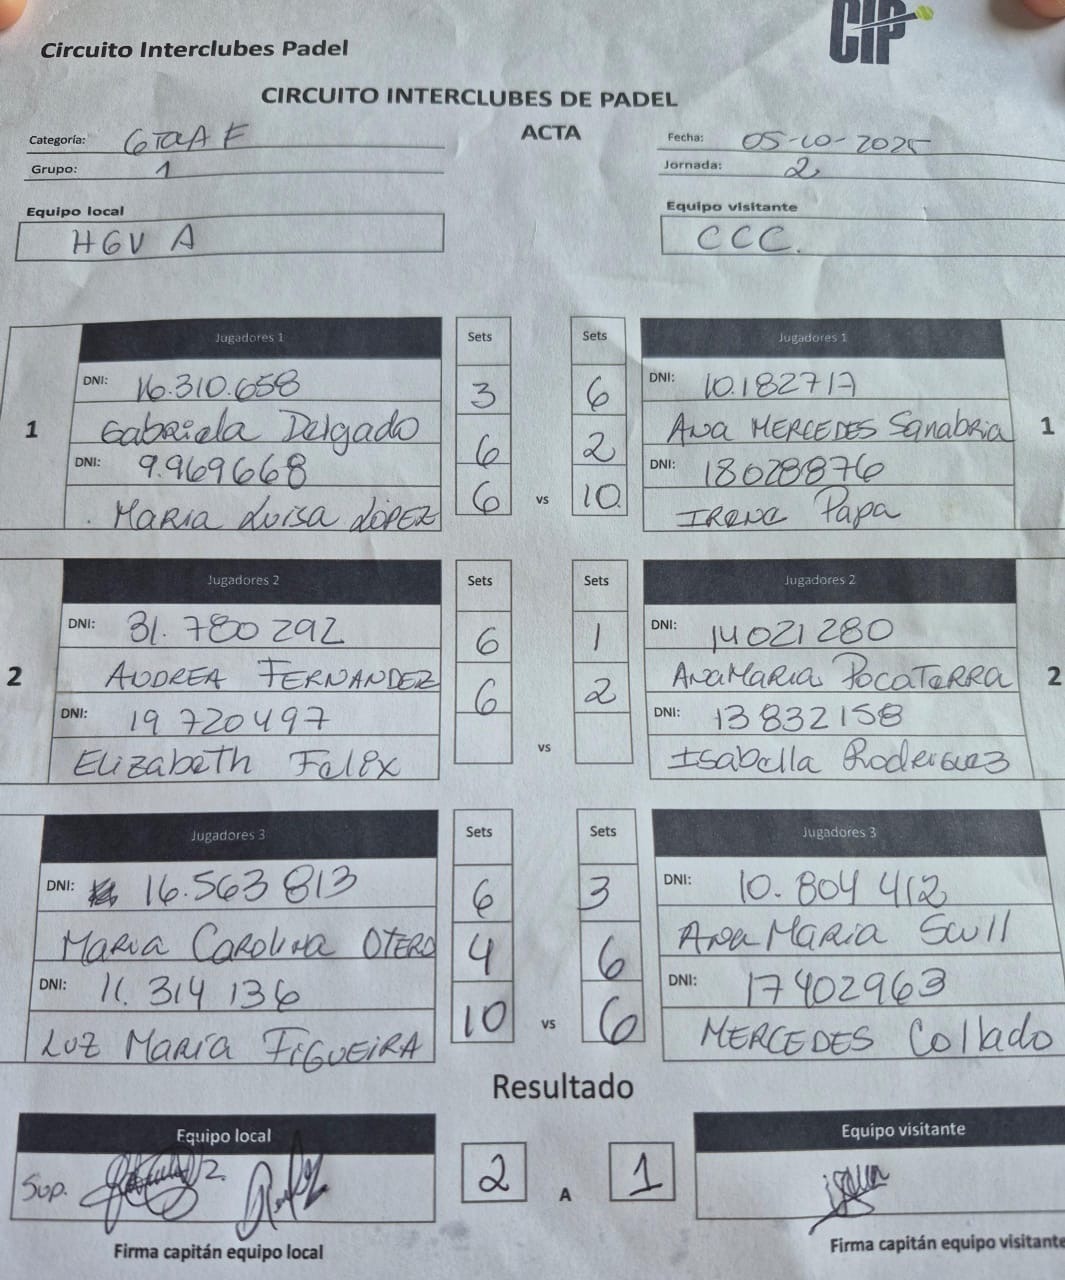 CIP
Circuito Interclubes Padel
CIRCUITO INTERCLUBES DE PADEL
ACTA
Categoría: 6TA A F
Fecha: 05-10-2025
Grupo: 1
Jornada: 2
Equipo local
Equipo visitante
HGV A
CCC.
Jugadores 1 Sets Sets Jugadores 1
DNI: 16.310.658 3 6 DNI: 10.182717
1 Gabriela Delgado 6 2 Ana MERCEDES Sanabria 1
DNI: 9.969668 DNI: 18028876
MARIA Luisa LOPEZ 6 vs 10. IRENE Papa
Jugadores 2 Sets Sets Jugadores 2
DNI: 31.780292 6 1 DNI: 14021280
2 AUDREA FERNANDEZ 6 2 ANAMARIA POCATERRA 2
DNI: 19720497 DNI: 13832158
Elizabeth Felix vs Isabella Roderiguez
Jugadores 3 Sets Sets Jugadores 3
DNI: 16.563813 6 3 DNI: 10.804412
MARIA CAROLINA OTERO 4 6 ANA MARIA Scull
DNI: 11.314136 DNI: 17402963
LUZ MARIA FIGUEIRA 10 vs 6 MERCEDES Collado
Resultado
Equipo local
Equipo visitante
Sup. 2 A 1
Firma capitán equipo local
Firma capitán equipo visitante